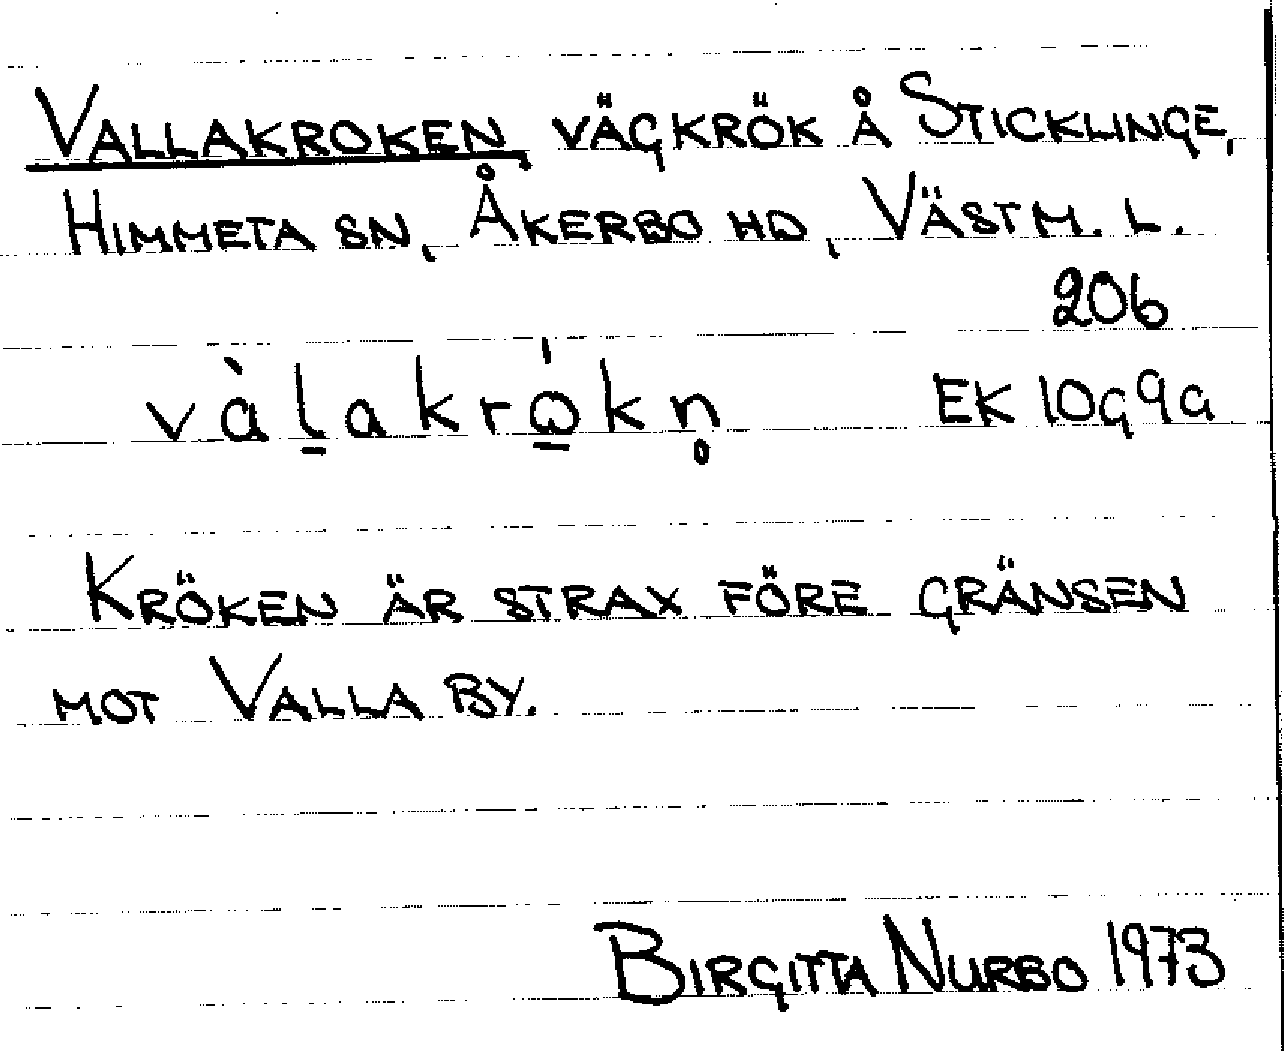 VALLAKROKEN, VÄGKRÖK Å STICKLINGE,
HIMMETA SN, ÅKERBO HD, VÄSTM. L.
206
vàl̠akrώ̠kn̥ EK 10G9a
KRÖKEN ÄR STRAX FÖRE GRÄNSEN
MOT VALLA BY.
BIRGITTA NURBO 1973